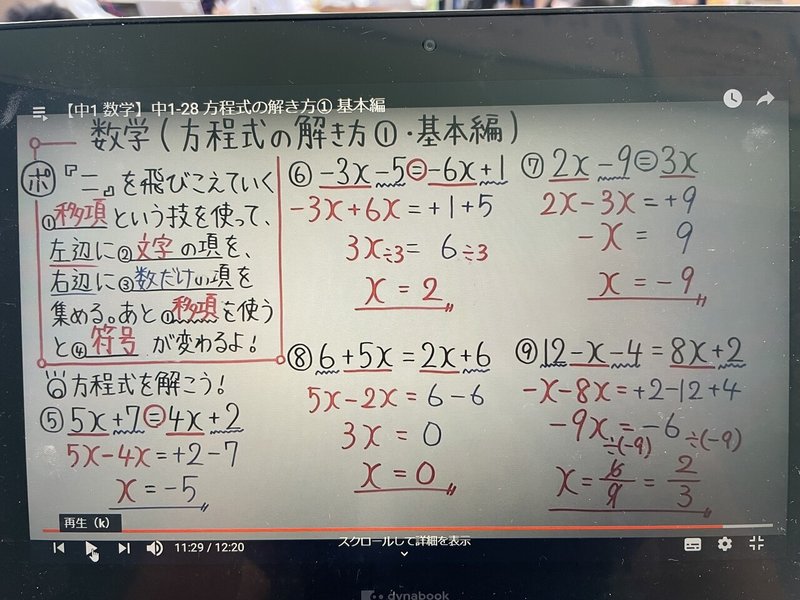 【中1 数学】中1-28 方程式の解き方① 基本編
数学(方程式の解き方①・基本編)
ポ 『=』を飛びこえていく
①移項という技を使って、
左辺に②文字の項を、
右辺に③数だけの項を
集める。あと①移項を使う
と④符号が変わるよ!
方程式を解こう!
⑤ 5x+7=4x+2
5x-4x=+2-7
x=-5
⑥ -3x-5=-6x+1
-3x+6x=+1+5
3x÷3=6÷3
x=2
⑦ 2x-9=3x
2x-3x=+9
-x=9
x=-9
⑧ 6+5x=2x+6
5x-2x=6-6
3x=0
x=0
⑨ 12-x-4=8x+2
-x-8x=+2-12+4
-9x÷(-9)=-6÷(-9)
x=6/9=2/3
再生 (k)
11:29 / 12:20
スクロールして詳細を表示
dynabook